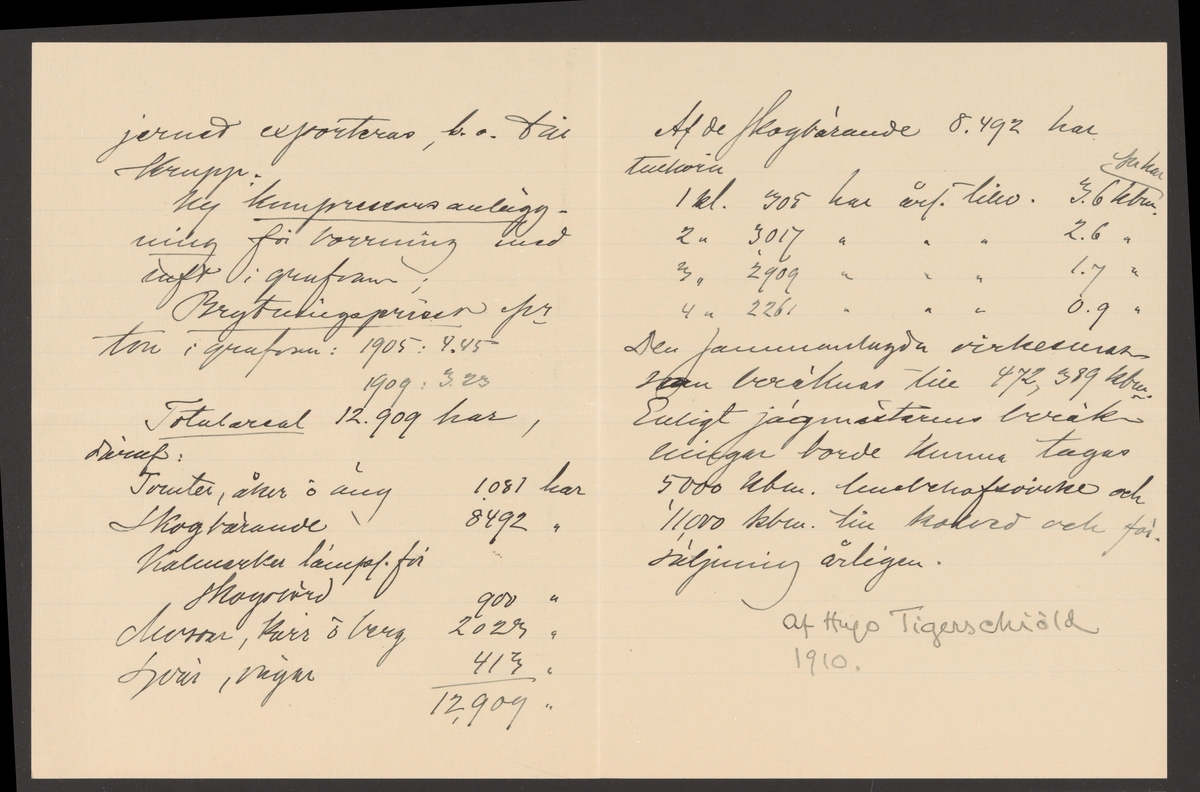 jernet exporteras, b. a. till
Krupp.
Ny kompressorsanlägg-
ning för borrning med
luft i grufvan;
Brytningspriset pr
ton i grufvan: 1905: 4.45
1909: 3.23
Totalareal 12.909 har,
däraf:
Tomter, åker o äng 1.081 har
Skogbärande 8492 "
Kalmarker lämpl. för
skogsvård 900 "
Mossar, kärr o berg 2023 "
Sjöar, vägar 413 "
12,909 "
Af de skogbärande 8.492 har
tillhöra
per har
1 kl. 305 har årl. tillv. 3.6 kbm.
2 " 3017 " " " 2.6 "
3 " 2909 " " " 1.7 "
4 " 2261 " " " 0.9 "
Den sammanlagda virkesmas-
san beräknas till 472,389 kbm.
Enligt jägmästarens beräk-
ningar borde kunna tagas
5000 kbm. husbehofsvirke och
11,000 kbm. till kolved och för-
säljning årligen.
Af Hugo Tigerschiöld
1910.